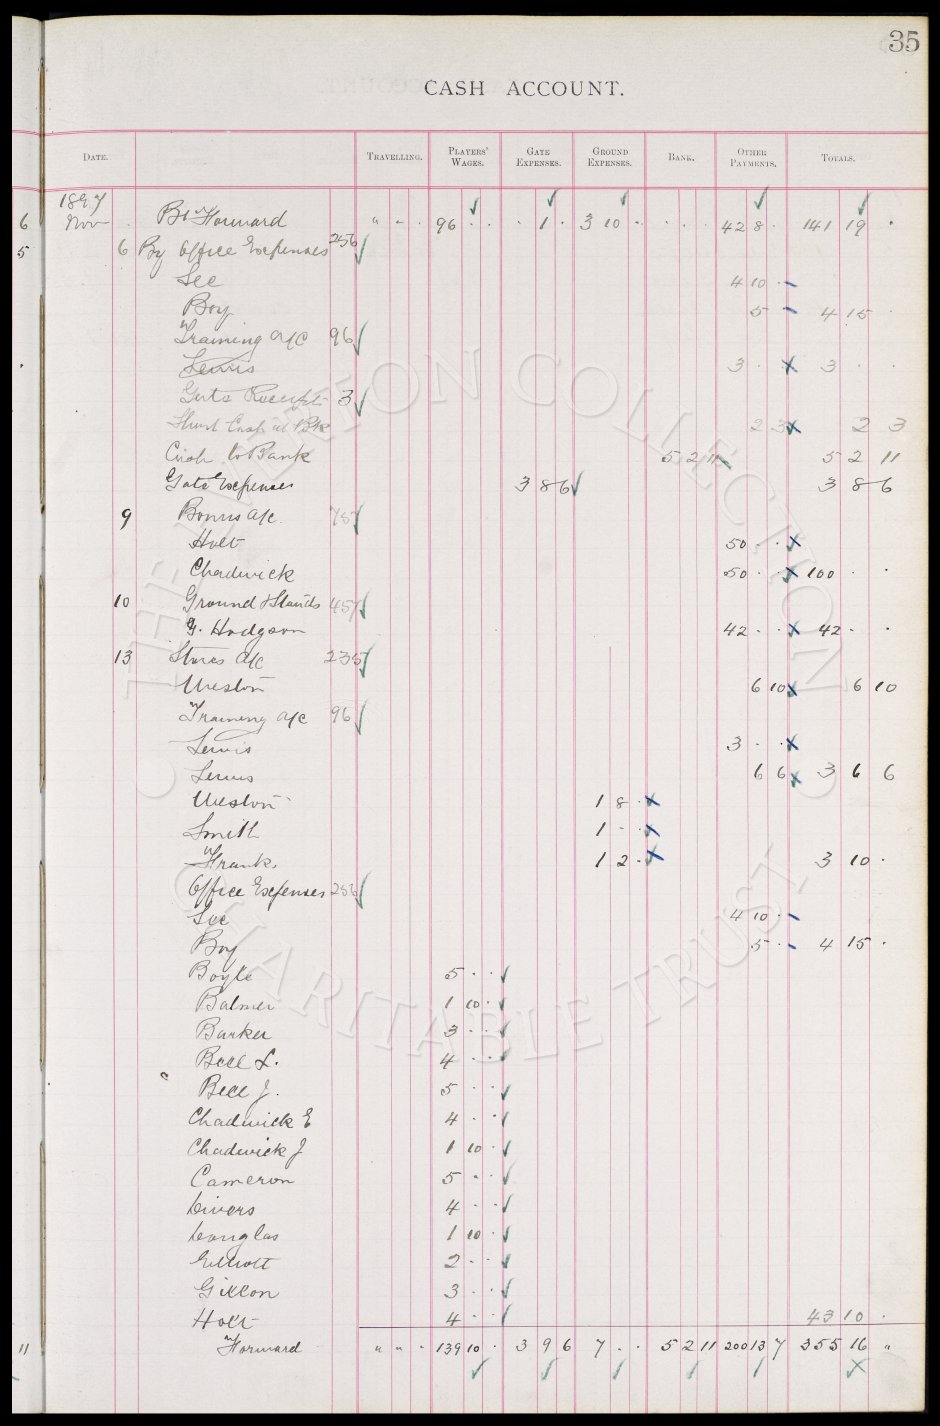 35
CASH ACCOUNT.
DATE. TRAVELLING. PLAYERS' WAGES. GATE EXPENSES. GROUND EXPENSES. BANK. OTHER PAYMENTS. TOTALS.
1897
6 Nov Bt Forward " " · 96 · · · 1 · 3 10 · · · · 42 8 · 141 19 ·
5 6 By Office Expenses 256
Sec 4 10 ·
Boy 5 · 4 15 ·
Training a/c 96
Lewis 3 · · 3 · ·
Gate Receipts 3
Short Cash at Bk 2 3 2 3
Cash to Bank 5 2 11 5 2 11
Gate Expenses 3 8 6 3 8 6
9 Bonus a/c.
Holt 50 · ·
Chadwick 50 · · 100 · ·
10 Ground & Stands 457
G. Hodgson 42 · · 42 · ·
13 Stores a/c 235
Weston 6 10 6 10
Training a/c 96
Lewis 3 · ·
Lewis 6 6 3 6 6
Weston 1 8 ·
Smith 1 · ·
Frank 1 2 · 3 10 ·
Office Expenses 256
Sec 4 10 ·
Boy 5 · 4 15 ·
Boyle 5 · ·
Balmer 1 10 ·
Barker 3 · ·
Bell L. 4 · ·
Bell J. 5 · ·
Chadwick E 4 · ·
Chadwick J 1 10 ·
Cameron 5 · ·
Divers 4 · ·
Douglas 1 10 ·
Elliott 2 · ·
Gillon 3 · ·
Holt 4 · · 43 10 ·
11 Forward " " · 139 10 · 3 9 6 7 · · 5 2 11 200 13 7 355 16 "
THE EVERTON COLLECTION
CHARITABLE TRUST